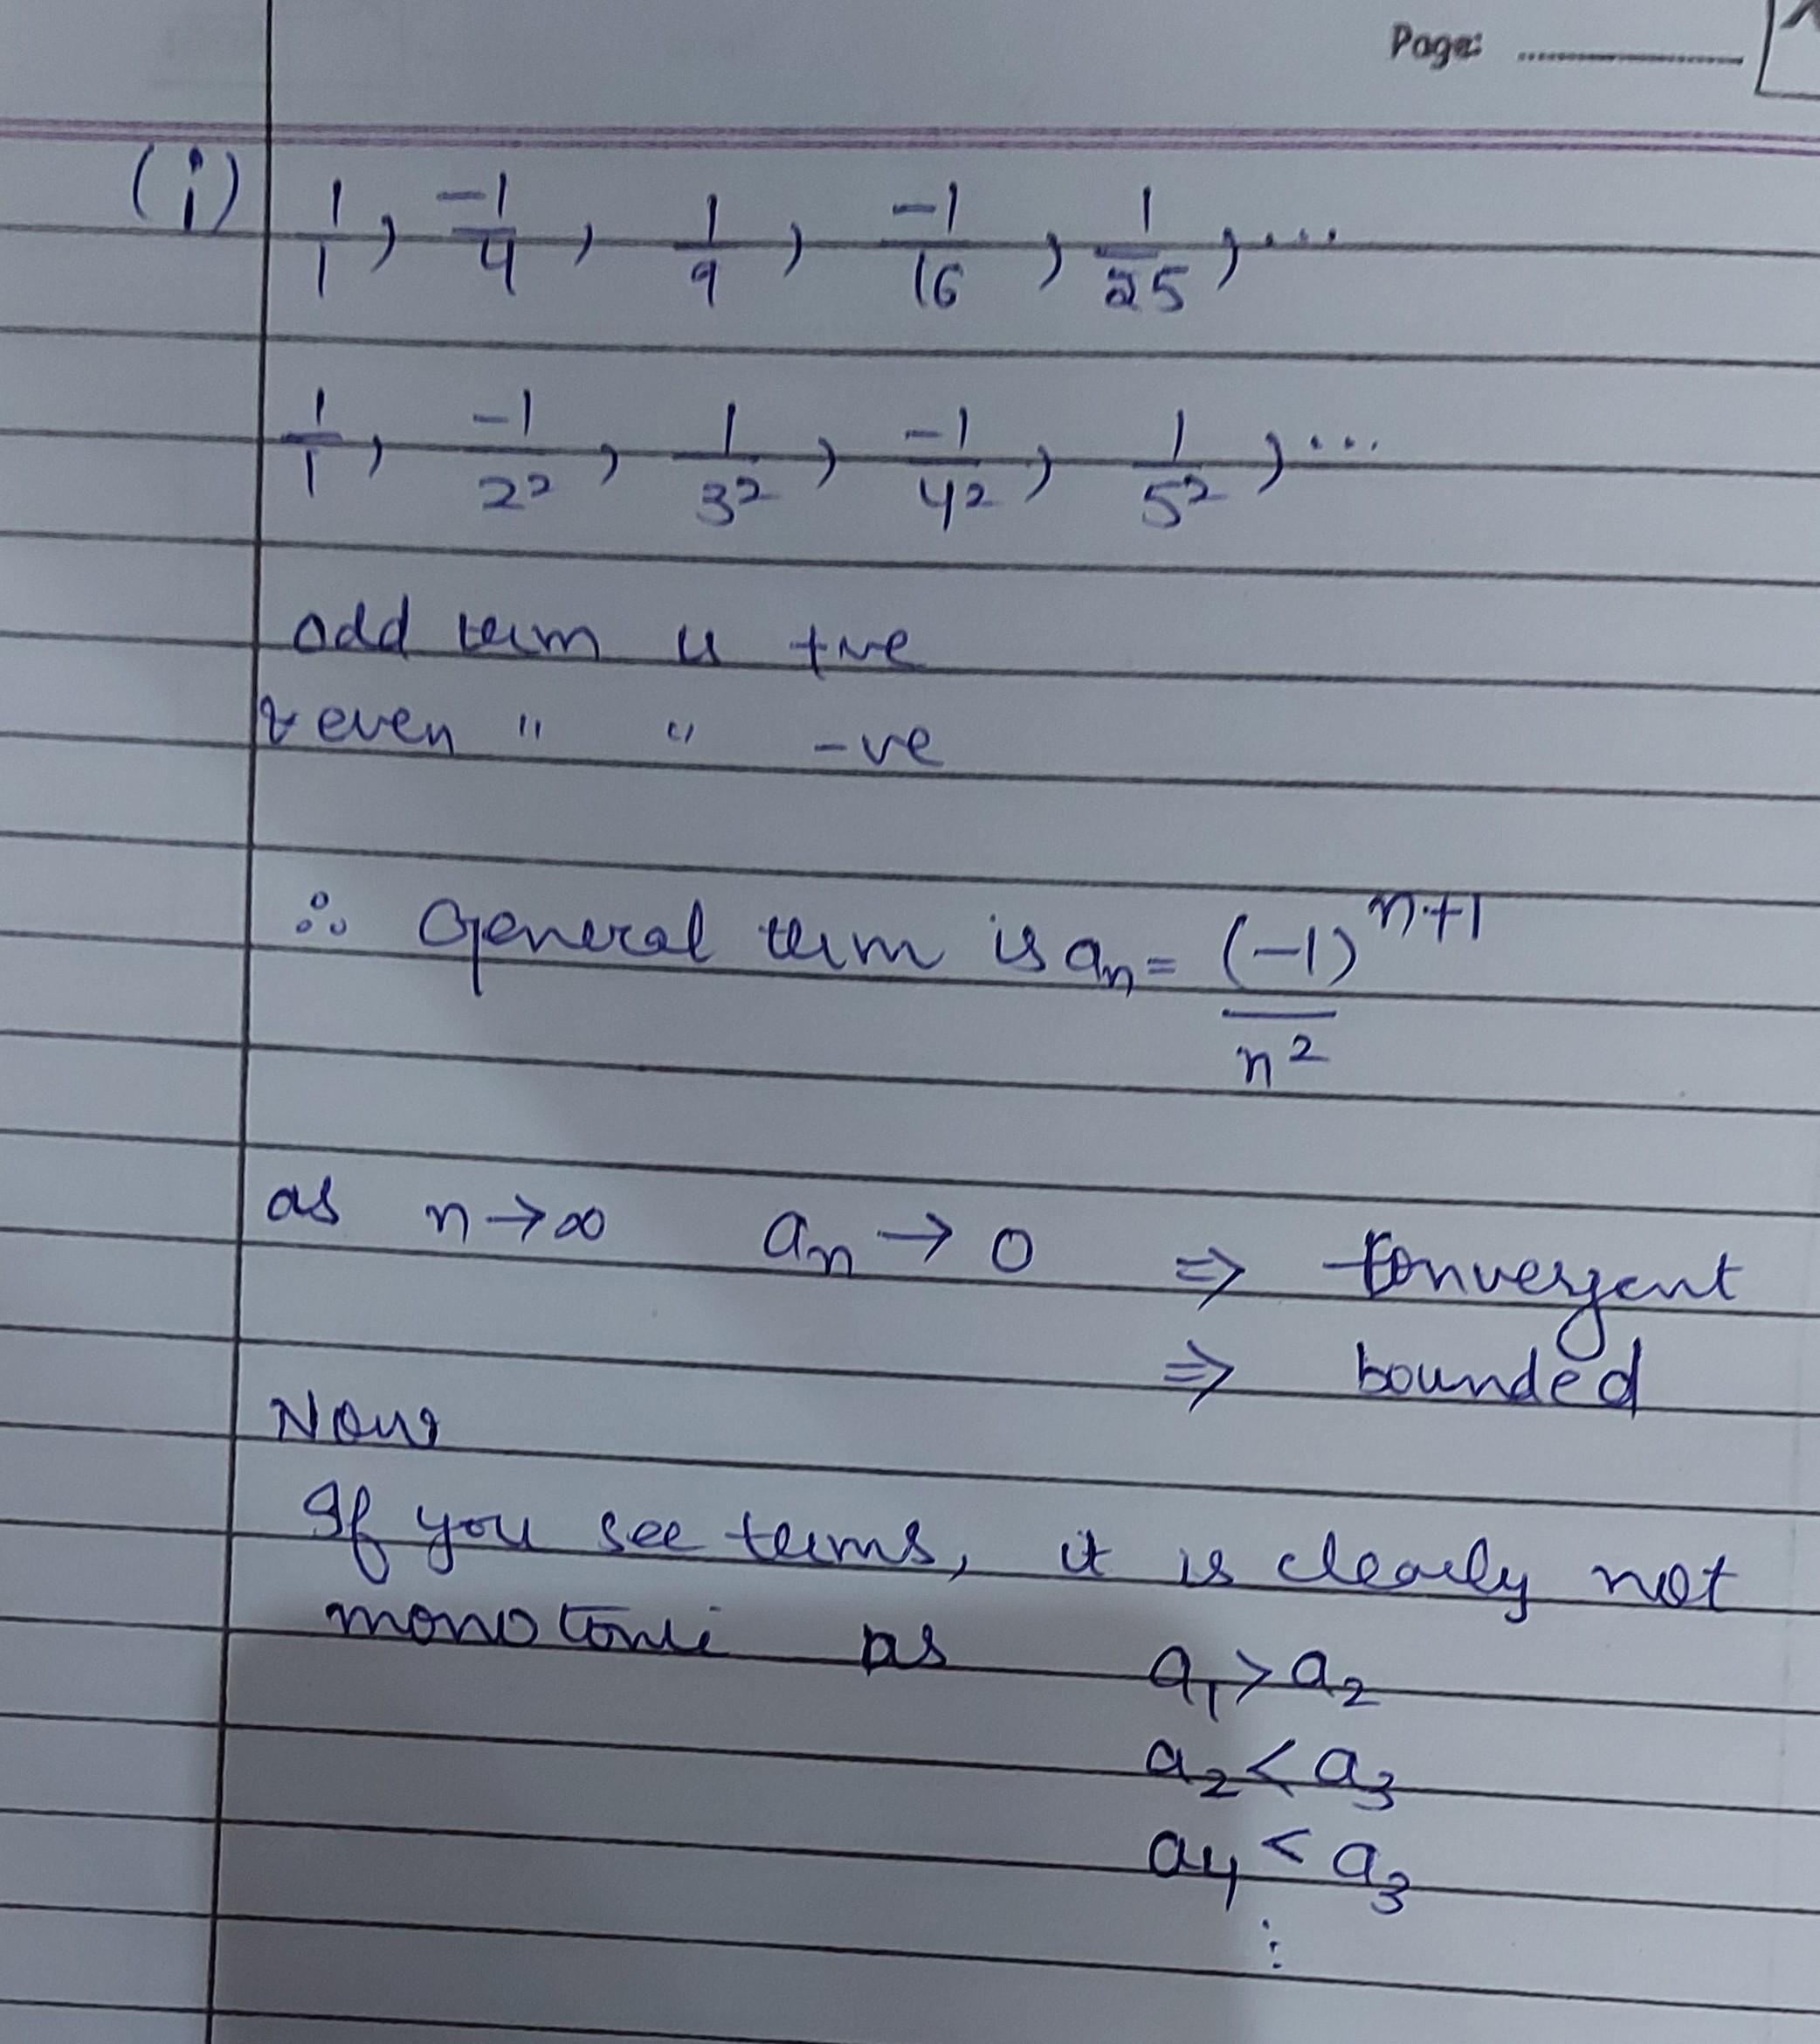 Page:
(i) 1/1, -1/4, 1/9, -1/16, 1/25, ...
1/1, -1/2², 1/3², -1/4², 1/5², ...
odd term is +ve
& even " " -ve
∴ General term is aₙ = (-1)ⁿ⁺¹/n²
as n→∞ aₙ → 0 ⇒ Convergent
⇒ bounded
Now
If you see terms, it is clearly not
monotonic as a₁ > a₂
a₂ < a₃
a₄ < a₃
⋮